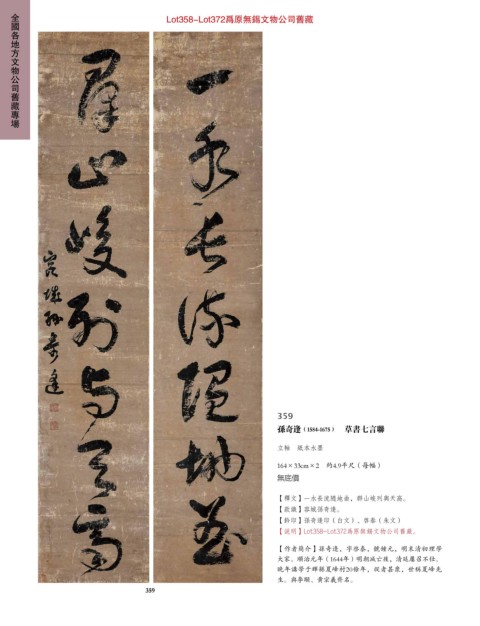 Lot358-Lot372爲原無錫文物公司舊藏
全國各地方文物公司舊藏專場
一水長流隨地曲
群山峻列與天高
容城孫奇逢
359
孫奇逢（1584-1675） 草書七言聯
立軸 紙本水墨
164×33cm×2 約4.9平尺（每幅）
無底價
【釋文】一水長流隨地曲，群山峻列與天高。
【款識】容城孫奇逢。
【鈐印】孫奇逢印（白文）、啓泰（朱文）
【說明】Lot358-Lot372爲原無錫文物公司舊藏。
【作者簡介】孫奇逢，字啓泰，號鍾元，明末清初理學
大家。順治元年（1644年）明朝滅亡後，清廷屢召不仕。
晚年講學于輝縣夏峰村20餘年，從者甚衆，世稱夏峰先
生。與李顒、黃宗羲齊名。
359